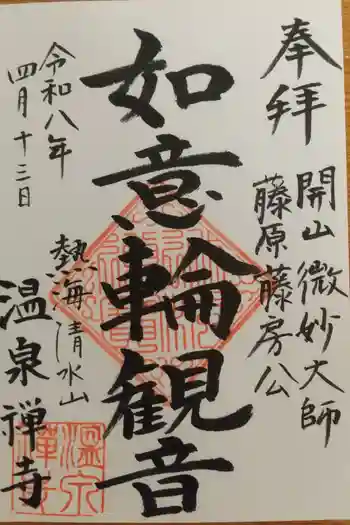 奉拝
開山微妙大師
藤原藤房公
如意輪観音
熱海清水山
温泉禅寺
令和八年
四月十三日